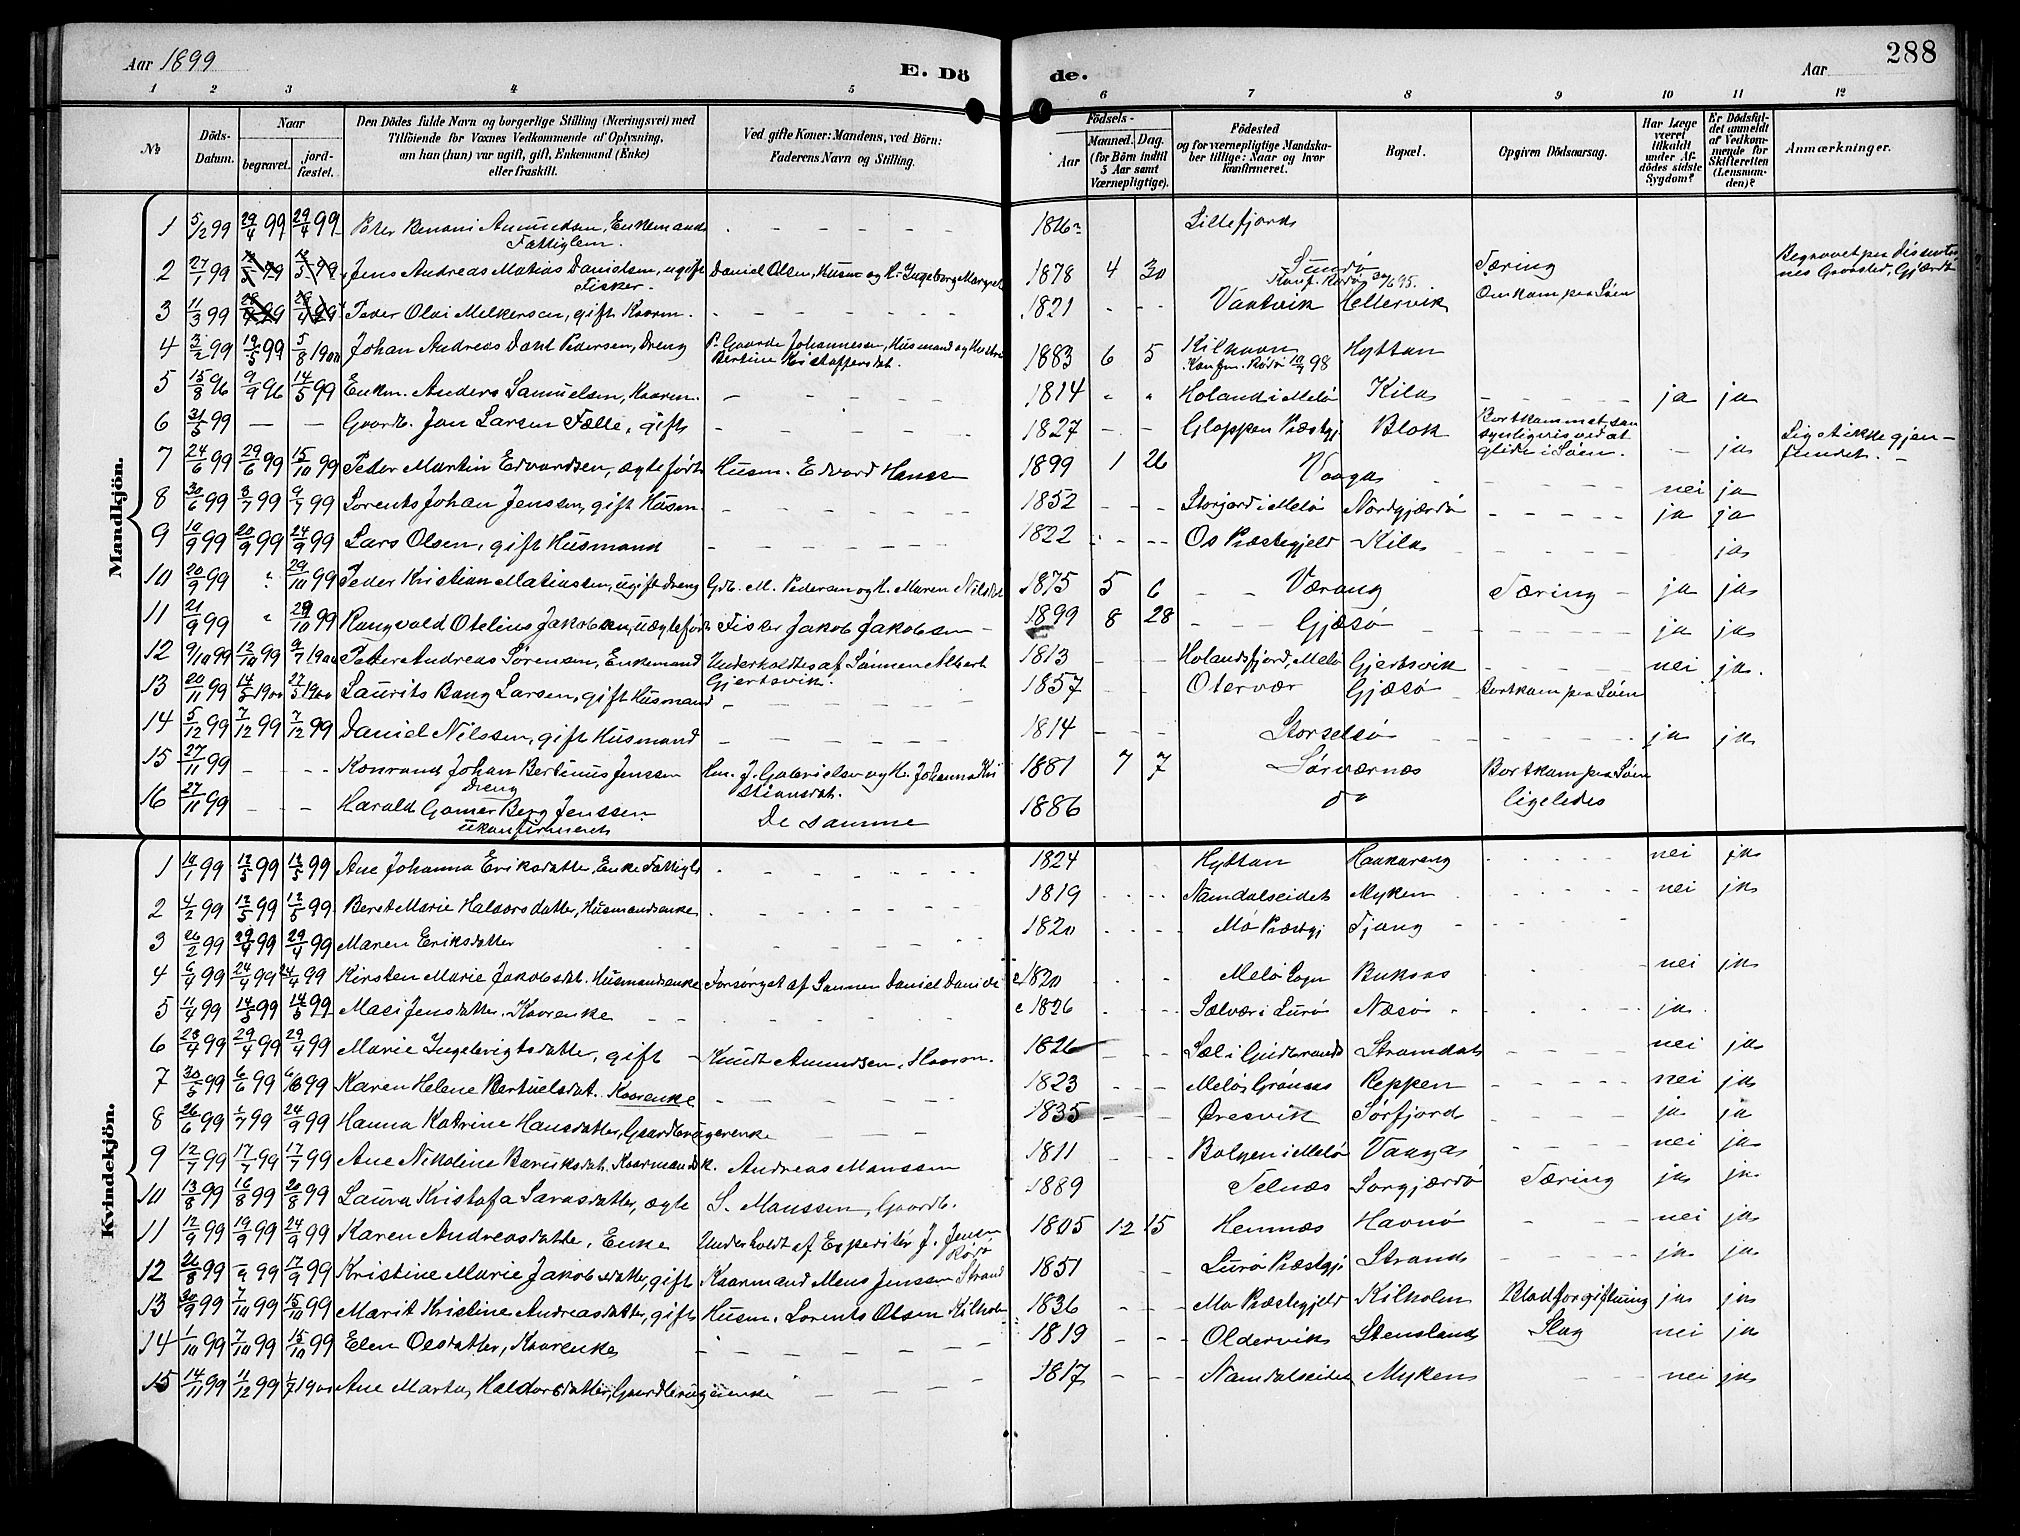 Aar 1899 E. Dö de. Aar 288
1 2 3 4 5 6 7 8 9 10 11 12
№ Döds-Datum. Naar begravet. jord-fæstet. Den Dödes fulde Navn og borgerlige Stilling (Næringsvei) med Tilföiende for Voxnes Vedkommende af Oplysning, om han (hun) var ugift, gift, Enkemand (Enke) eller fraskilt. Ved gifte Koner: Mandens, ved Börn: Faderens Navn og Stilling. Födsels- Aar Maaned. Dag. (for Börn indtil 5 Aar samt Værnepligtige). Födested og for værnepligtige Mandskaber tillige: Naar og hvor konfirmeret. Bopæl. Opgiven Dödsaarsag. Har Læge været tilkaldt under Afdödes sidste Sygdom? Er Dödsfaldet anmeldt af Vedkommende for Skifteretten (Lensmanden)? Anmærkninger.
Mandkjön.
1 5/2 99 29/4 99 29/4 99 Peter Benoni Amundsen, Enkemand Fattiglem. - - - - Lillefjord
2 27/1 99 Jens Andreas Matias Danielsen, ugift Fisker. Daniel Olsen, Husm. og H. Ingeborg Margret 1878 4 30 Sundø Konf. Rødø 95. Tæring Begravet paa Dissenternes Gravsted, Gjærdø
3 11/3 99 Peder Olai Melkersen, gift Kaarm. - - - - 1821 - - Vaatvik Hellervik Omkom paa Søen
4 3/2 99 12/5 99 5/8 1900 Johan Andreas Dahl Pedersen, Dreng P. Gaarde Johannesen, Husmand og Hustru Bertine Kristoffersdat. 1883 6 5 Kilhavn Konfm. Rødø 98 Hyttan
5 15/8 96 9/9 96 14/5 99 Enkm. Anders Samuelsen, Kaarm. - - - 1814 " " Holand i Melø Kila - - - ja ja
6 31/5 99 - - Gaardb. Jon Larsen Fælle, gift - - - 1827 - - Gloppen Præstgj Blok Bortkommet, sandsynligvis ved at glide i Søen. - ja Lig et ikke gjenfundet. -
7 24/6 99 29/6 99 15/10 99 Peder Martin Edvardsen, ægtefødt Husm. Edvard Hansen 1899 1 26 Vaaga - - - nei ja
8 30/6 99 8/7 99 9/7 99 Lorents Johan Jenssen, gift Husm. - - - 1852 - - Storjord i Melø Nordgjærdø - - - ja ja
9 10/9 99 20/9 99 24/9 99 Lars Olsen, gift Husmand - - - 1822 - - Os Præstegjeld Kila - - - ja
10 20/9 99 " 29/10 99 Peder Kristian Matiassen, ugift Dreng Gdb. M. Pedersen og H. Maren Nilsdat 1875 5 6 - - Værang Tæring - ja ja
11 21/9 99 " 29/10 99 Rangvald Otelius Jakobsen, uægtefødt Fisker Jakob Jakobsen - 1899 8 28 - - Gjæsø - - - ja ja
12 9/10 99 12/10 99 9/7 1900 Petter Andreas Sørensen, Enkemand Underholdtes af Sønnen Albert Gjertsvik. 1813 - - Holandsfjord, Melø Gjertsvik - - - nei ja.
13 20/11 99 14/5 1900 27/5 1900 Laurits Bang Larsen, gift Husmand - - - 1857 - - Otervær Gjæsø Bortkom paa Søen
14 5/12 99 7/12 99 7/12 99 Daniel Nilssen, gift Husmand - - - 1814 - - Storselsø - - - ja ja
15 27/11 99 - - Konrand Johan Bertinus Jenssen Dreng Hm. J. Gabrielsen og H. Johanna Kristiansdat. 1881 7 7 Sørværnes Bortkom paa Søen
16 27/11 99 - - Harald Gomer Berg Jenssen ukonfirmeret De samme 1886 do ligeledes
Kvindekjön.
1 19/1 99 12/5 99 12/5 99 Ane Johanna Eriksdatter, Enke Fattigl - - - 1824 Hyttan Haakareng - - - nei ja
2 4/2 99 12/5 99 12/5 99 Beret Marie Halvorsdatter, Husmandsenke - - - 1819 - - Namdalseidet Myken - - - nei ja
3 26/2 99 29/4 99 29/4 99 Maren Eriksdatter - - - 1820 - - Mo Præstgj Tjong - - -
4 6/4 99 24/4 99 24/4 99 Kirsten Marie Jakobsdat. Husmandsenke Forsørget af Sønnen Daniel Daniels 1820 - - Melø Sogn Buksas - - - nei ja
5 11/4 99 14/5 99 14/5 99 Masi Jensdatter. Kaarenke - - - 1826 - - Selvær i Lurø Næsø - - ja.
6 23/4 99 29/4 99 29/4 99 Marie Ingebrigtsdatter, gift - Knudt Amundsen, Kaarm. 1826 - - Sæl i Gudbrands Strømdal - - - nei ja
7 30/5 99 6/6 99 6/6 99 Karen Helene Bertuelsdat. Kaarenke - - - 1823 - - Melø, Grønaas Reppen - - - nei ja
8 26/6 99 1/7 99 24/9 99 Hanna Katrine Hansdatter, Gaardbrugerenke - - - 1835 - - Øresvik Sørfjord ja ja
9 12/7 99 17/7 99 17/7 99 Ane Nikoline Baruksdat. Kaarmandsk. Andreas Monssen 1811 - - Bolgen i Melø Vaaga - - - nei ja
10 13/8 99 16/8 99 20/8 99 Laura Kristofa Larsdatter, ægte L. Monssen, Gaardb. 1889 Telnæs Sørgjærdø Tæring ja ja
11 12/9 99 19/9 99 24/9 99 Karen Andreasdatter, Enke Underholdt af Expeditør J. Jensen Rødø 1805 12 15 Hemnæs Havnø - - - nei ja
12 26/8 99 -/9 99 17/9 99 Kristine Marie Jakobsdatter, gift Kaarmand Mons Jenssen Strand 1851 - - Lurø Præstgj Strand - - - ja ja
13 30/9 99 7/10 99 15/10 99 Marit Kristine Andreasdatter, gift Husm. Lorents Olsen Kilholm 1836 - - Mo Præstegjeld Kilholm Blodforgiftning ja ja
14 1/10 99 7/10 99 15/10 99 Elen Olsdatter, Kaarenke - - - 1819 - - Oldervik Stensland Slag nei ja
15 14/11 99 11/12 99 1/7 1900 Ane Marta Haldorsdatter, Gaardbrugerenke - - - 1817 - - Namdalseidet Myken - - - nei ja